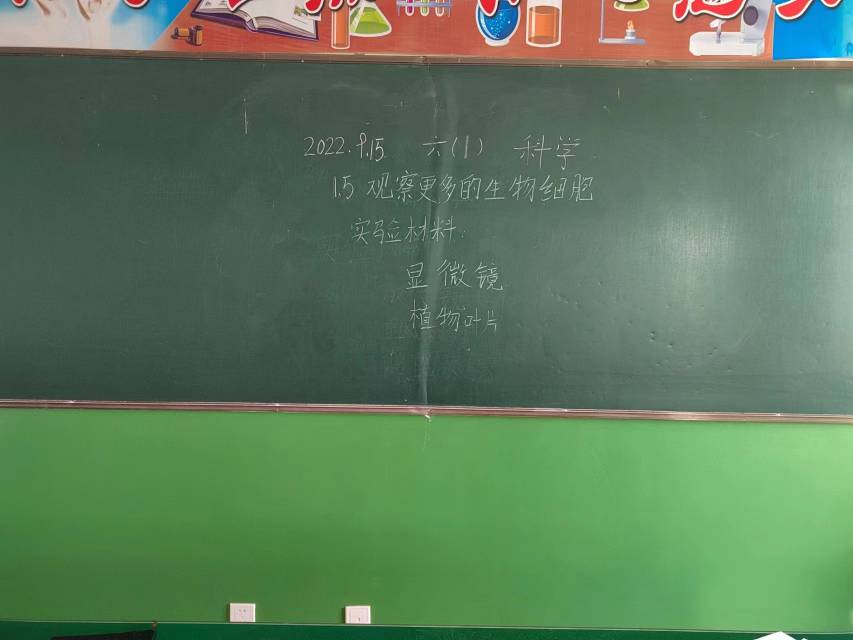 2022.9.15 六(1) 科学
1.5 观察更多的生物细胞
实验材料:
显微镜
植物叶片